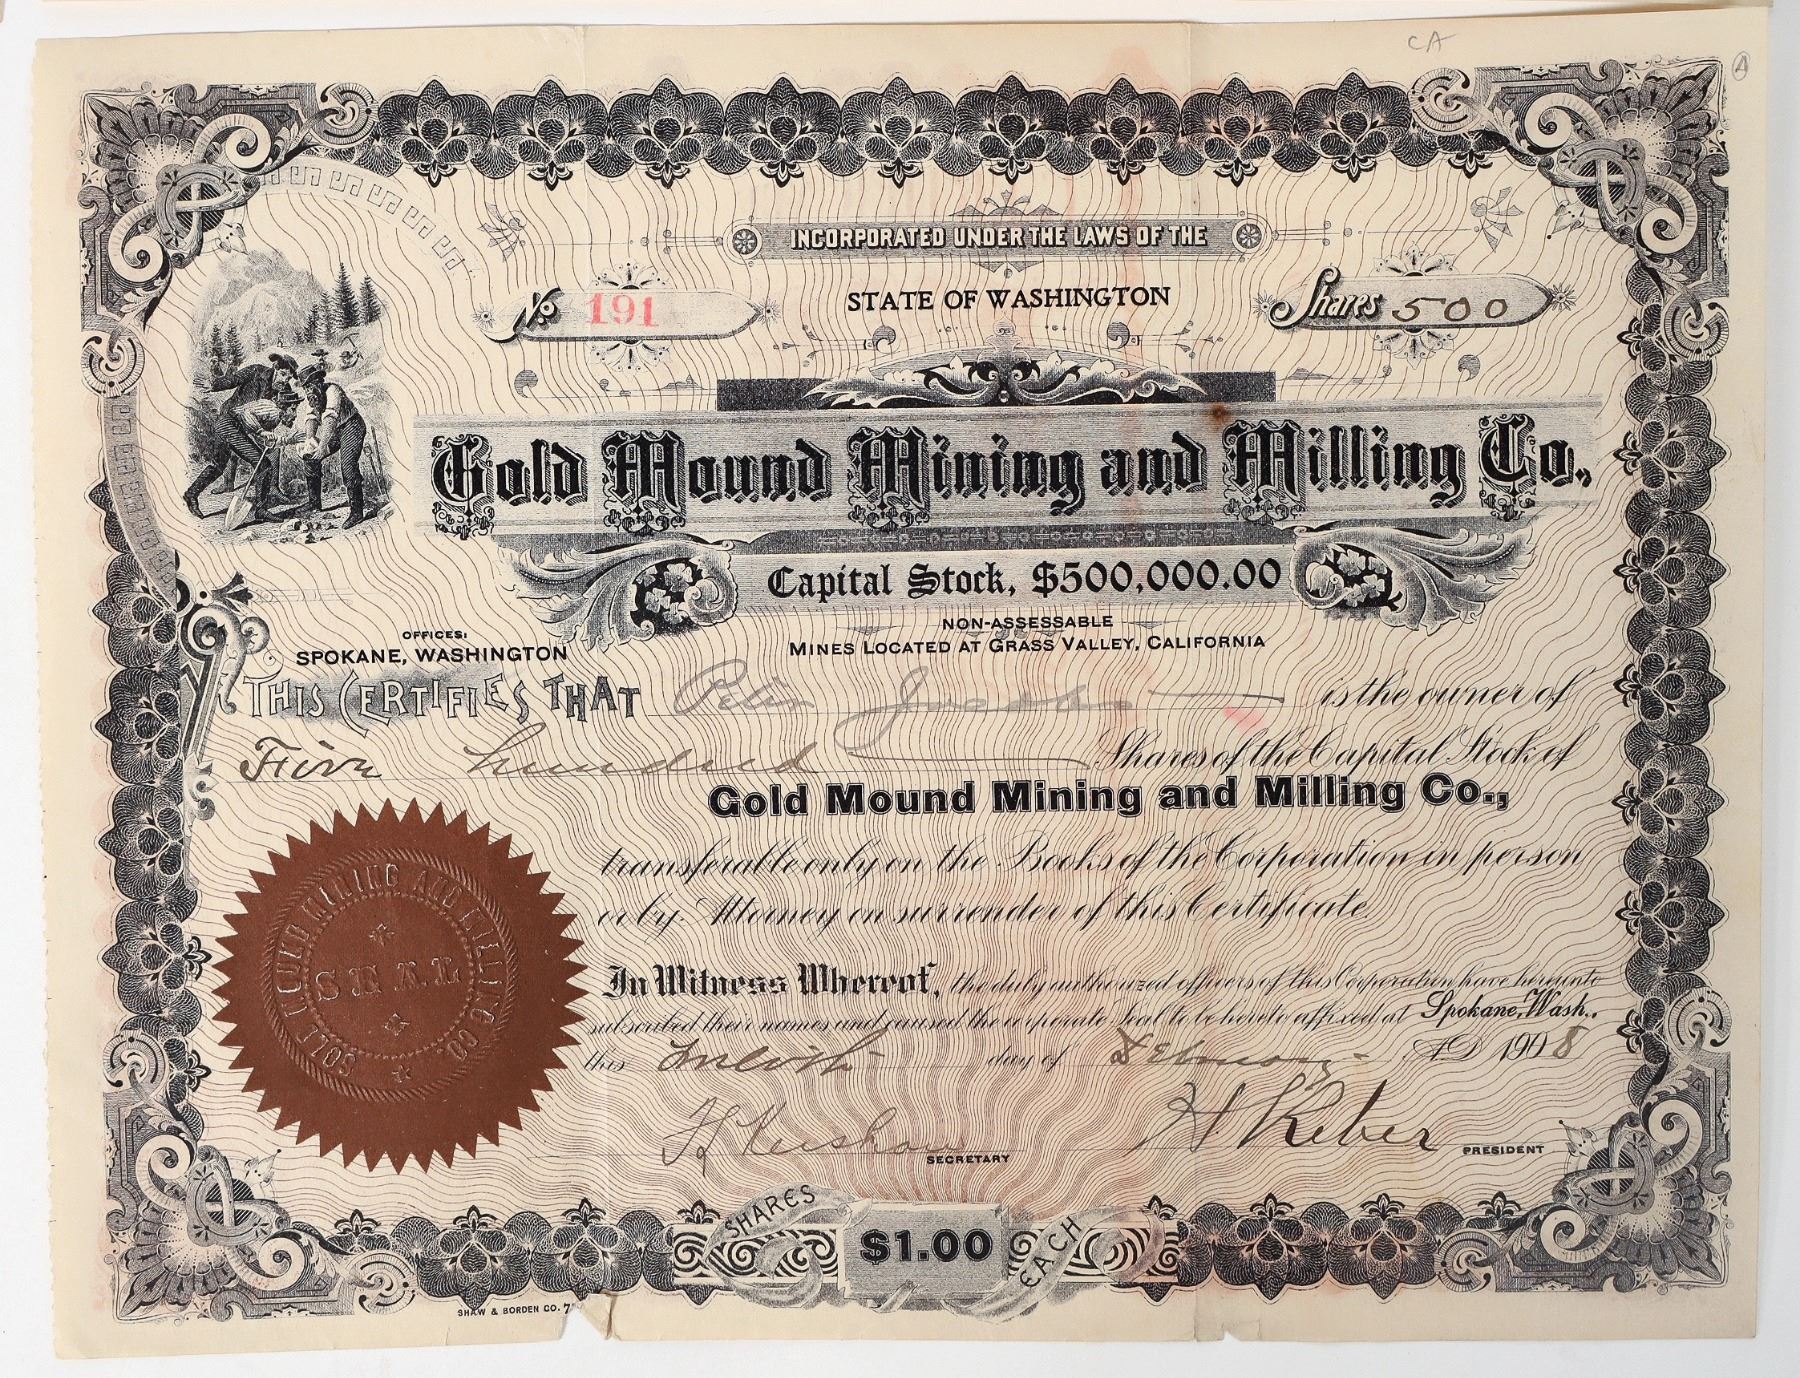 CA
A
INCORPORATED UNDER THE LAWS OF THE
STATE OF WASHINGTON
No. 191
Shares 500
Gold Mound Mining and Milling Co.,
Capital Stock, $500,000.00
NON-ASSESSABLE
MINES LOCATED AT GRASS VALLEY, CALIFORNIA
OFFICES:
SPOKANE, WASHINGTON
THIS CERTIFIES THAT Peter Jacobs is the owner of
Five hundred Shares of the Capital Stock of
Gold Mound Mining and Milling Co.,
transferable only on the Books of the Corporation in person
or by Attorney on surrender of this Certificate.
In Witness Whereof, the duly authorized officers of this Corporation have hereunto
subscribed their names and caused the corporate Seal to be hereto affixed at Spokane, Wash.,
this day of February AD 1908
Kershaw SECRETARY
H Reber PRESIDENT
GOLD MOUND MINING AND MILLING CO.
SEAL
SHARES $1.00 EACH
SHAW & BORDEN CO.